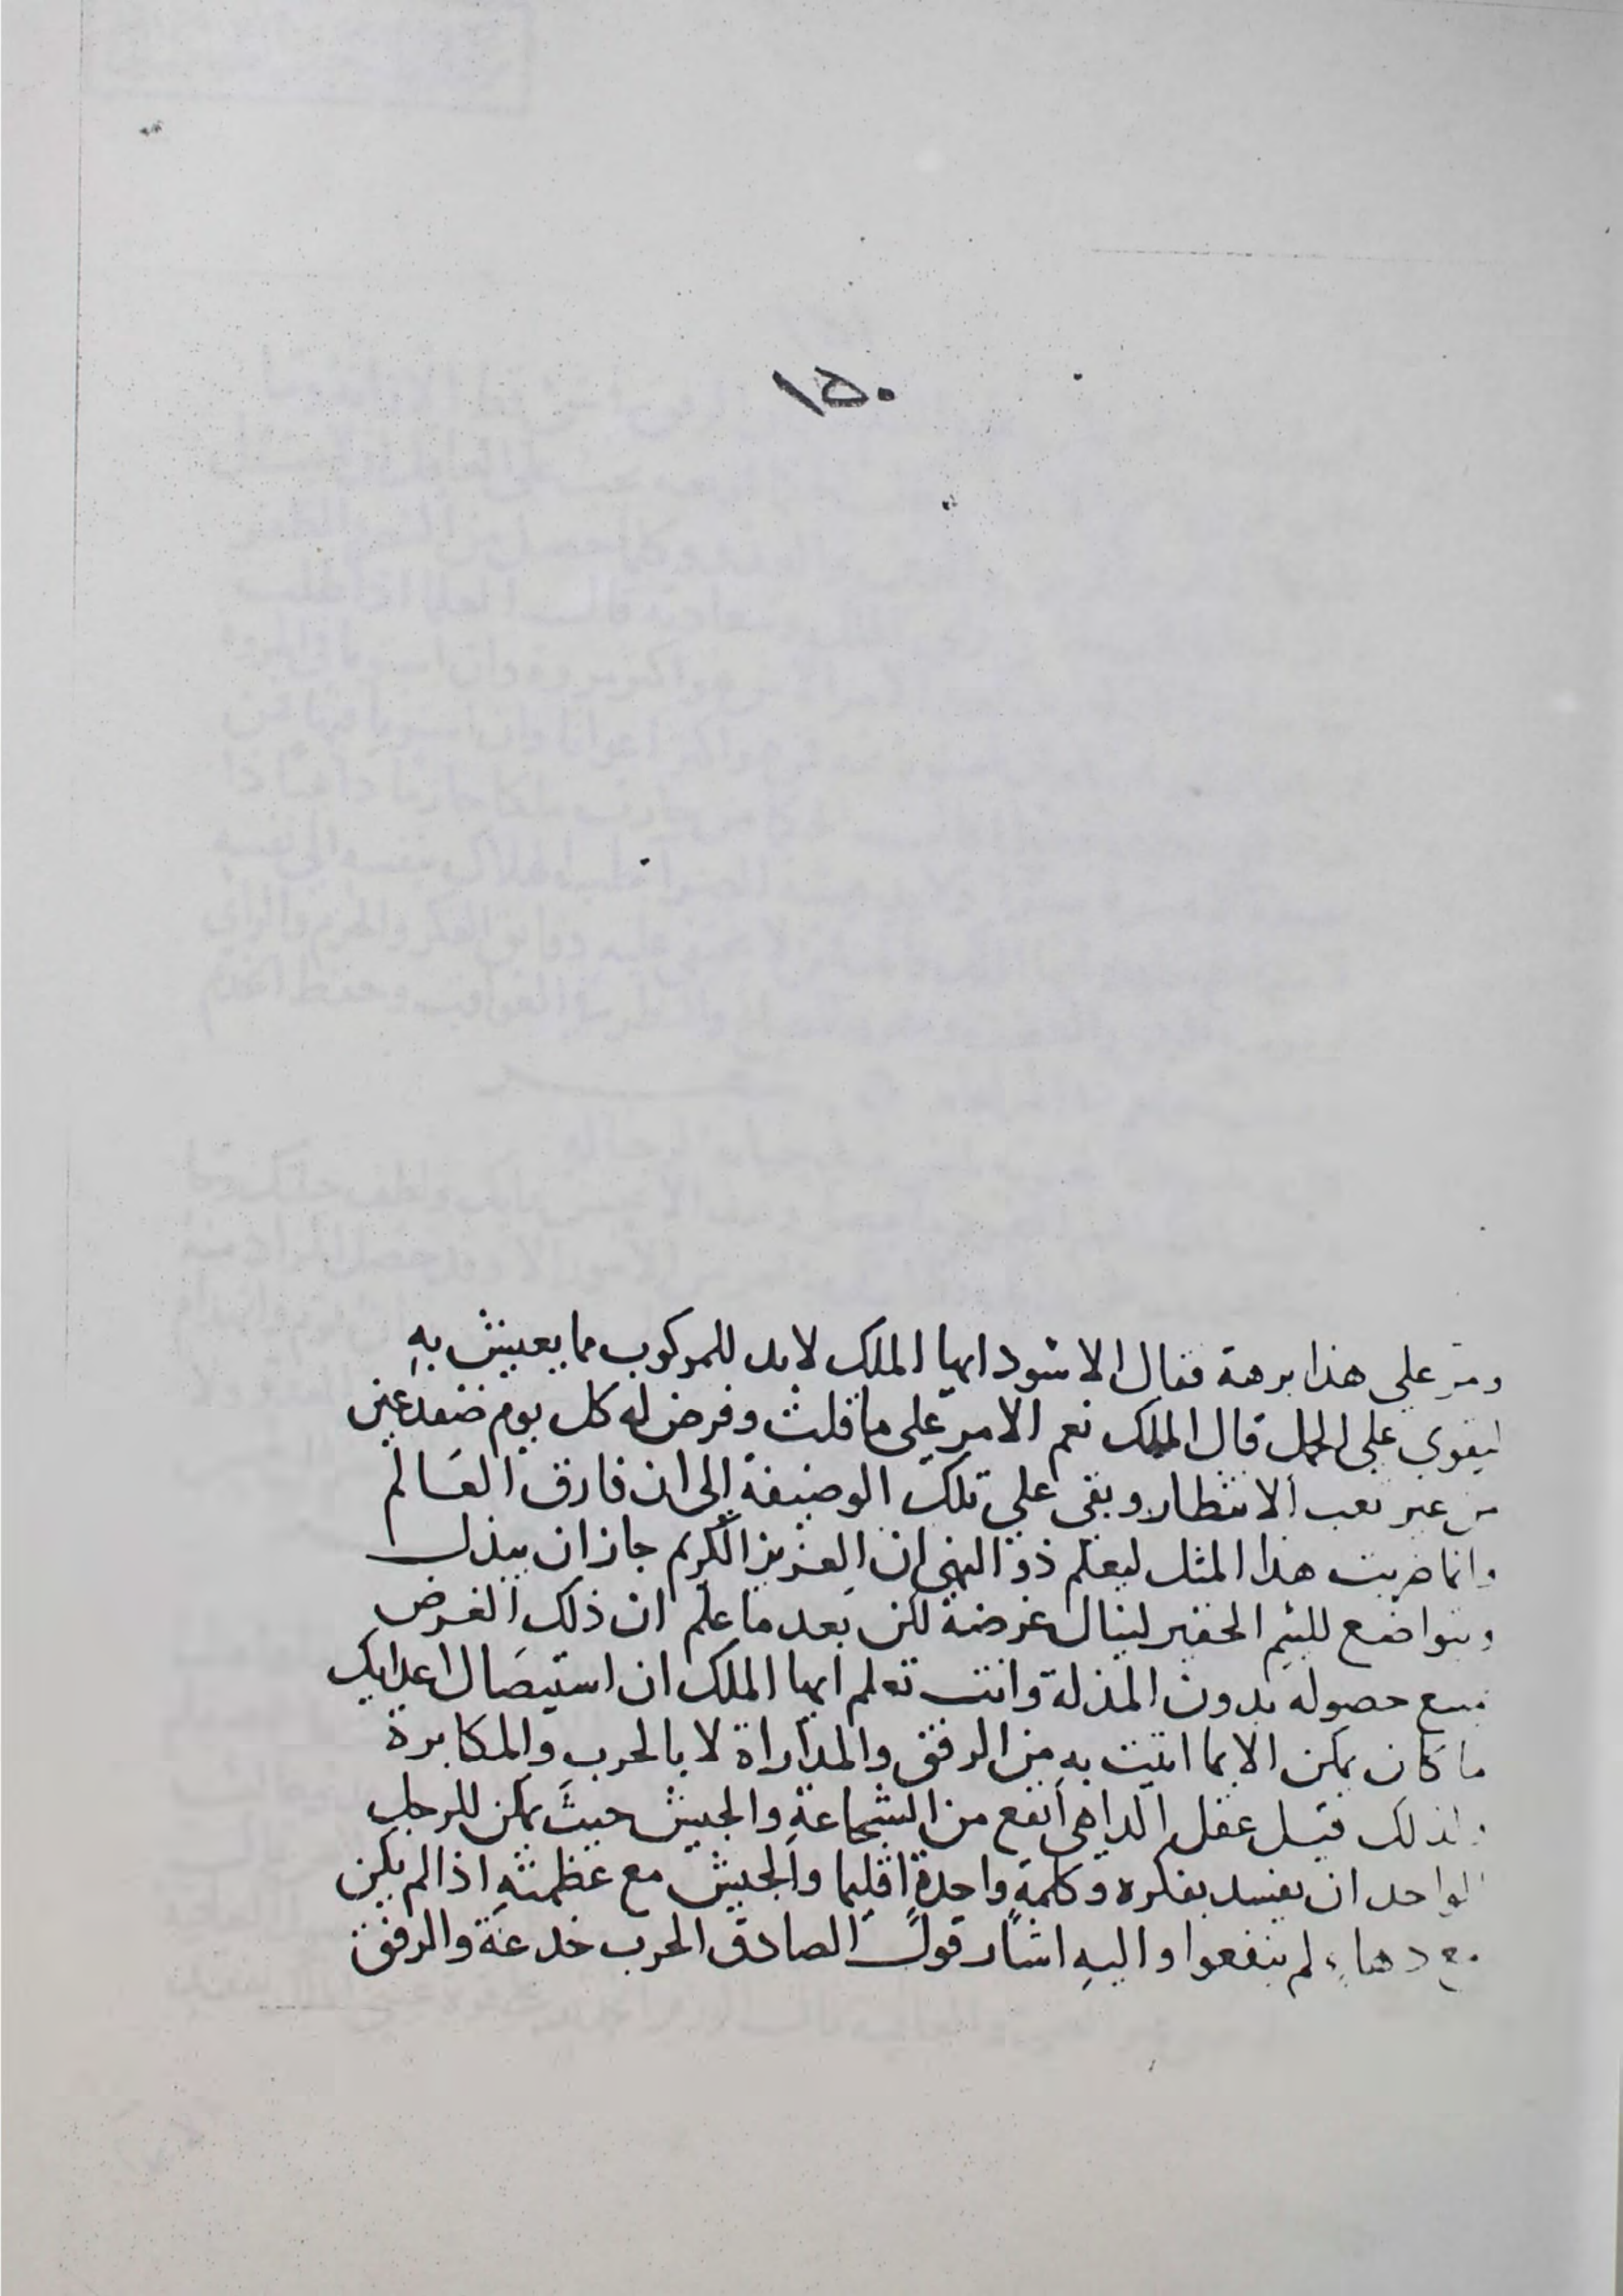 ١٥٠
ومر على هذا برهة فقال الاسود ايها الملك لابد للمركوب مما يعيش به
ليقوى على الحمل قال الملك نعم الامر على ما قلت وفرض له كل يوم ضفدعين
من غير تعب الانتظار وبقى على تلك الوضيفة الى ان فارق العالم
وانما ضربت هذا المثل ليعلم ذو النهى ان العزيز الكريم جاز ان يبذل
ويتواضع للئيم الحقير لينال غرضه لكن بعد ما علم ان ذلك الغرض
حصوله بدون المذلة وانت تعلم ايها الملك ان استيصال اعدايك
ما كان يمكن الا بما اتيت به من الرفق والمداراة لا بالحرب والمكابرة
ولذلك قيل عقل الداهى أنفع من الشجاعة والجيش حيث يمكن للرجل
الواحد ان يفسد بفكره وكلمة واحدة اقليما والجيش مع عظمته اذا لم يكن
مع دهاء لم ينفعوا واليه اشار قول الصادق الحرب خدعة والرفق